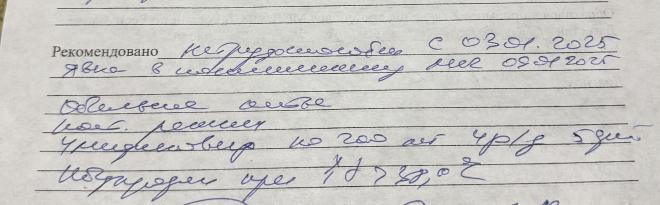 Рекомендовано нетрудоспособен с 03.01.2025
явка в поликлинику 09.01.2025
Обильное питье
пост. режим
по 200 мг 4 р/д 5 дней
Ибупрофен при t° > 38,0°C